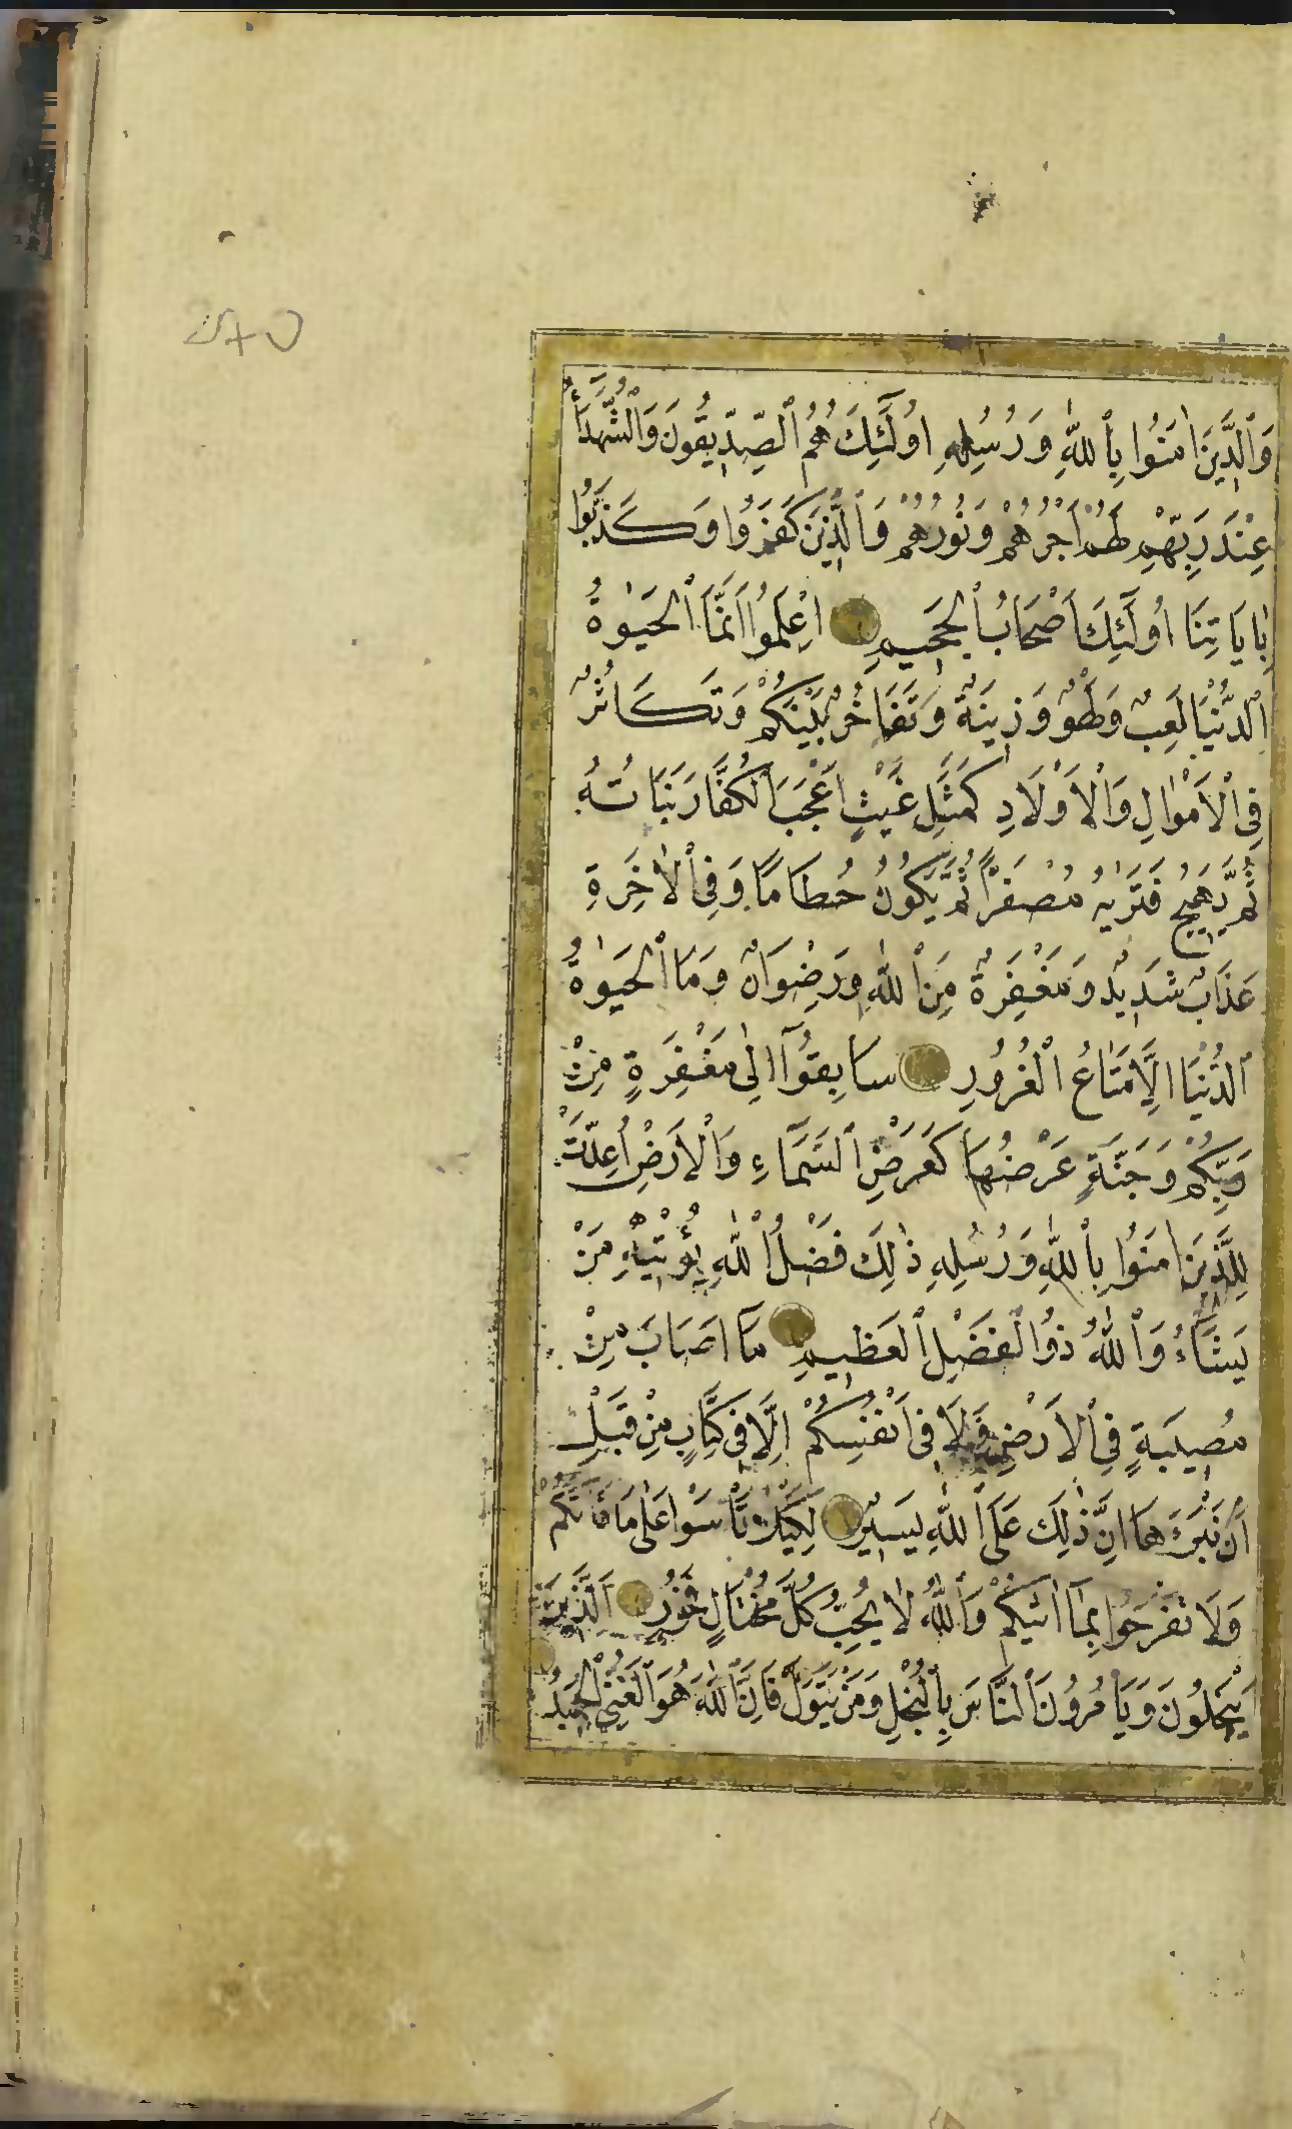 وَٱلَّذِينَ اٰمَنُوا بِٱللّٰهِ وَرُسُلِهِ اُولَٓئِكَ هُمُ ٱلصِّدِّيقُونَ وَٱلشُّهَدَٓاءُ
عِنْدَ رَبِّهِمْ لَهُمْ اَجْرُهُمْ وَنُورُهُمْ وَٱلَّذِينَ كَفَرُوا وَكَذَّبُوا
بِاٰيَاتِنَا اُولَٓئِكَ اَصْحَابُ ٱلْجَحِيمِ اِعْلَمُوا اَنَّمَا ٱلْحَيٰوةُ
ٱلدُّنْيَا لَعِبٌ وَلَهْوٌ وَزِينَةٌ وَتَفَاخُرٌ بَيْنَكُمْ وَتَكَاثُرٌ
فِي ٱلْاَمْوَالِ وَٱلْاَوْلَادِ كَمَثَلِ غَيْثٍ اَعْجَبَ ٱلْكُفَّارَ نَبَاتُهُ
ثُمَّ يَهِيجُ فَتَرٰيهُ مُصْفَرًّا ثُمَّ يَكُونُ حُطَامًا وَفِي ٱلْاٰخِرَةِ
عَذَابٌ شَدِيدٌ وَمَغْفِرَةٌ مِنَ ٱللّٰهِ وَرِضْوَانٌ وَمَا ٱلْحَيٰوةُ
ٱلدُّنْيَا اِلَّا مَتَاعُ ٱلْغُرُورِ سَابِقُٓوا اِلٰى مَغْفِرَةٍ مِنْ
رَبِّكُمْ وَجَنَّةٍ عَرْضُهَا كَعَرْضِ ٱلسَّمَٓاءِ وَٱلْاَرْضِ اُعِدَّتْ
لِلَّذِينَ اٰمَنُوا بِٱللّٰهِ وَرُسُلِهِ ذٰلِكَ فَضْلُ ٱللّٰهِ يُؤْتِيهِ مَنْ
يَشَٓاءُ وَٱللّٰهُ ذُو ٱلْفَضْلِ ٱلْعَظِيمِ مَٓا اَصَابَ مِنْ
مُصِيبَةٍ فِي ٱلْاَرْضِ وَلَا فِي اَنْفُسِكُمْ اِلَّا فِي كِتَابٍ مِنْ قَبْلِ
اَنْ نَبْرَاَهَا اِنَّ ذٰلِكَ عَلَى ٱللّٰهِ يَسِيرٌ لِكَيْلَا تَأْسَوْا عَلٰى مَا فَاتَكُمْ
وَلَا تَفْرَحُوا بِمَٓا اٰتٰيكُمْ وَٱللّٰهُ لَا يُحِبُّ كُلَّ مُخْتَالٍ فَخُورٍ اَلَّذِينَ
يَبْخَلُونَ وَيَأْمُرُونَ ٱلنَّاسَ بِٱلْبُخْلِ وَمَنْ يَتَوَلَّ فَاِنَّ ٱللّٰهَ هُوَ ٱلْغَنِيُّ ٱلْحَمِيدُ